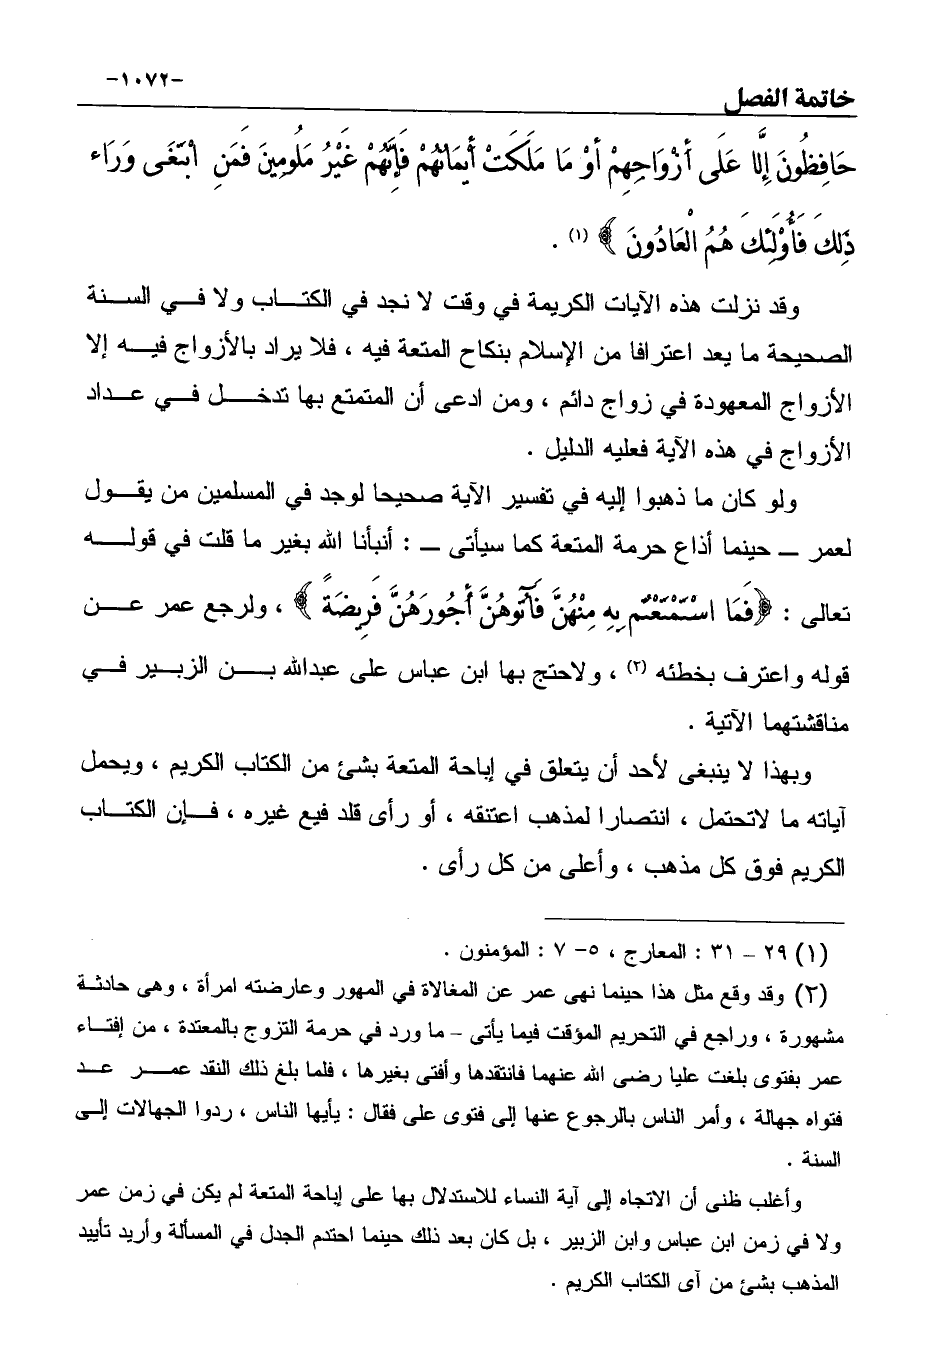 -١٠٧٢-
خاتمة الفصل
حَافِظُونَ إِلَّا عَلَى أَزْوَاجِهِمْ أَوْ مَا مَلَكَتْ أَيْمَانُهُمْ فَإِنَّهُمْ غَيْرُ مَلُومِينَ فَمَنِ ابْتَغَى وَرَاءَ
ذَلِكَ فَأُوْلَئِكَ هُمُ الْعَادُونَ ﴾ (١) .
وقد نزلت هذه الآيات الكريمة في وقت لا نجد في الكتاب ولا في السنة
الصحيحة ما يعد اعترافا من الإسلام بنكاح المتعة فيه ، فلا يراد بالأزواج فيه إلا
الأزواج المعهودة في زواج دائم ، ومن ادعى أن المتمتع بها تدخل في عداد
الأزواج في هذه الآية فعليه الدليل .
ولو كان ما ذهبوا إليه في تفسير الآية صحيحا لوجد في المسلمين من يقول
لعمر – حينما أذاع حرمة المتعة كما سيأتى – : أنبأنا الله بغير ما قلت في قوله
تعالى : ﴿ فَمَا اسْتَمْتَعْتُم بِهِ مِنْهُنَّ فَآتُوهُنَّ أُجُورَهُنَّ فَرِيضَةً ﴾ ، ولرجع عمر عن
قوله واعترف بخطئه (٢) ، ولاحتج بها ابن عباس على عبدالله بن الزبير في
مناقشتهما الآتية .
وبهذا لا ينبغى لأحد أن يتعلق في إباحة المتعة بشئ من الكتاب الكريم ، ويحمل
آياته ما لاتحتمل ، انتصارا لمذهب اعتنقه ، أو رأى قلد فيع غيره ، فإن الكتاب
الكريم فوق كل مذهب ، وأعلى من كل رأى .
(١) ٢٩ – ٣١ : المعارج ، ٥- ٧ : المؤمنون .
(٢) وقد وقع مثل هذا حينما نهى عمر عن المغالاة في المهور وعارضته امرأة ، وهى حادثة
مشهورة ، وراجع في التحريم المؤقت فيما يأتى – ما ورد في حرمة التزوج بالمعتدة ، من إفتاء
عمر بفتوى بلغت عليا رضى الله عنهما فانتقدها وأفتى بغيرها ، فلما بلغ ذلك النقد عمر عد
فتواه جهالة ، وأمر الناس بالرجوع عنها إلى فتوى على فقال : يأيها الناس ، ردوا الجهالات إلى
السنة .
وأغلب ظنى أن الاتجاه إلى آية النساء للاستدلال بها على إباحة المتعة لم يكن في زمن عمر
ولا في زمن ابن عباس وابن الزبير ، بل كان بعد ذلك حينما احتدم الجدل في المسألة وأريد تأييد
المذهب بشئ من آى الكتاب الكريم .